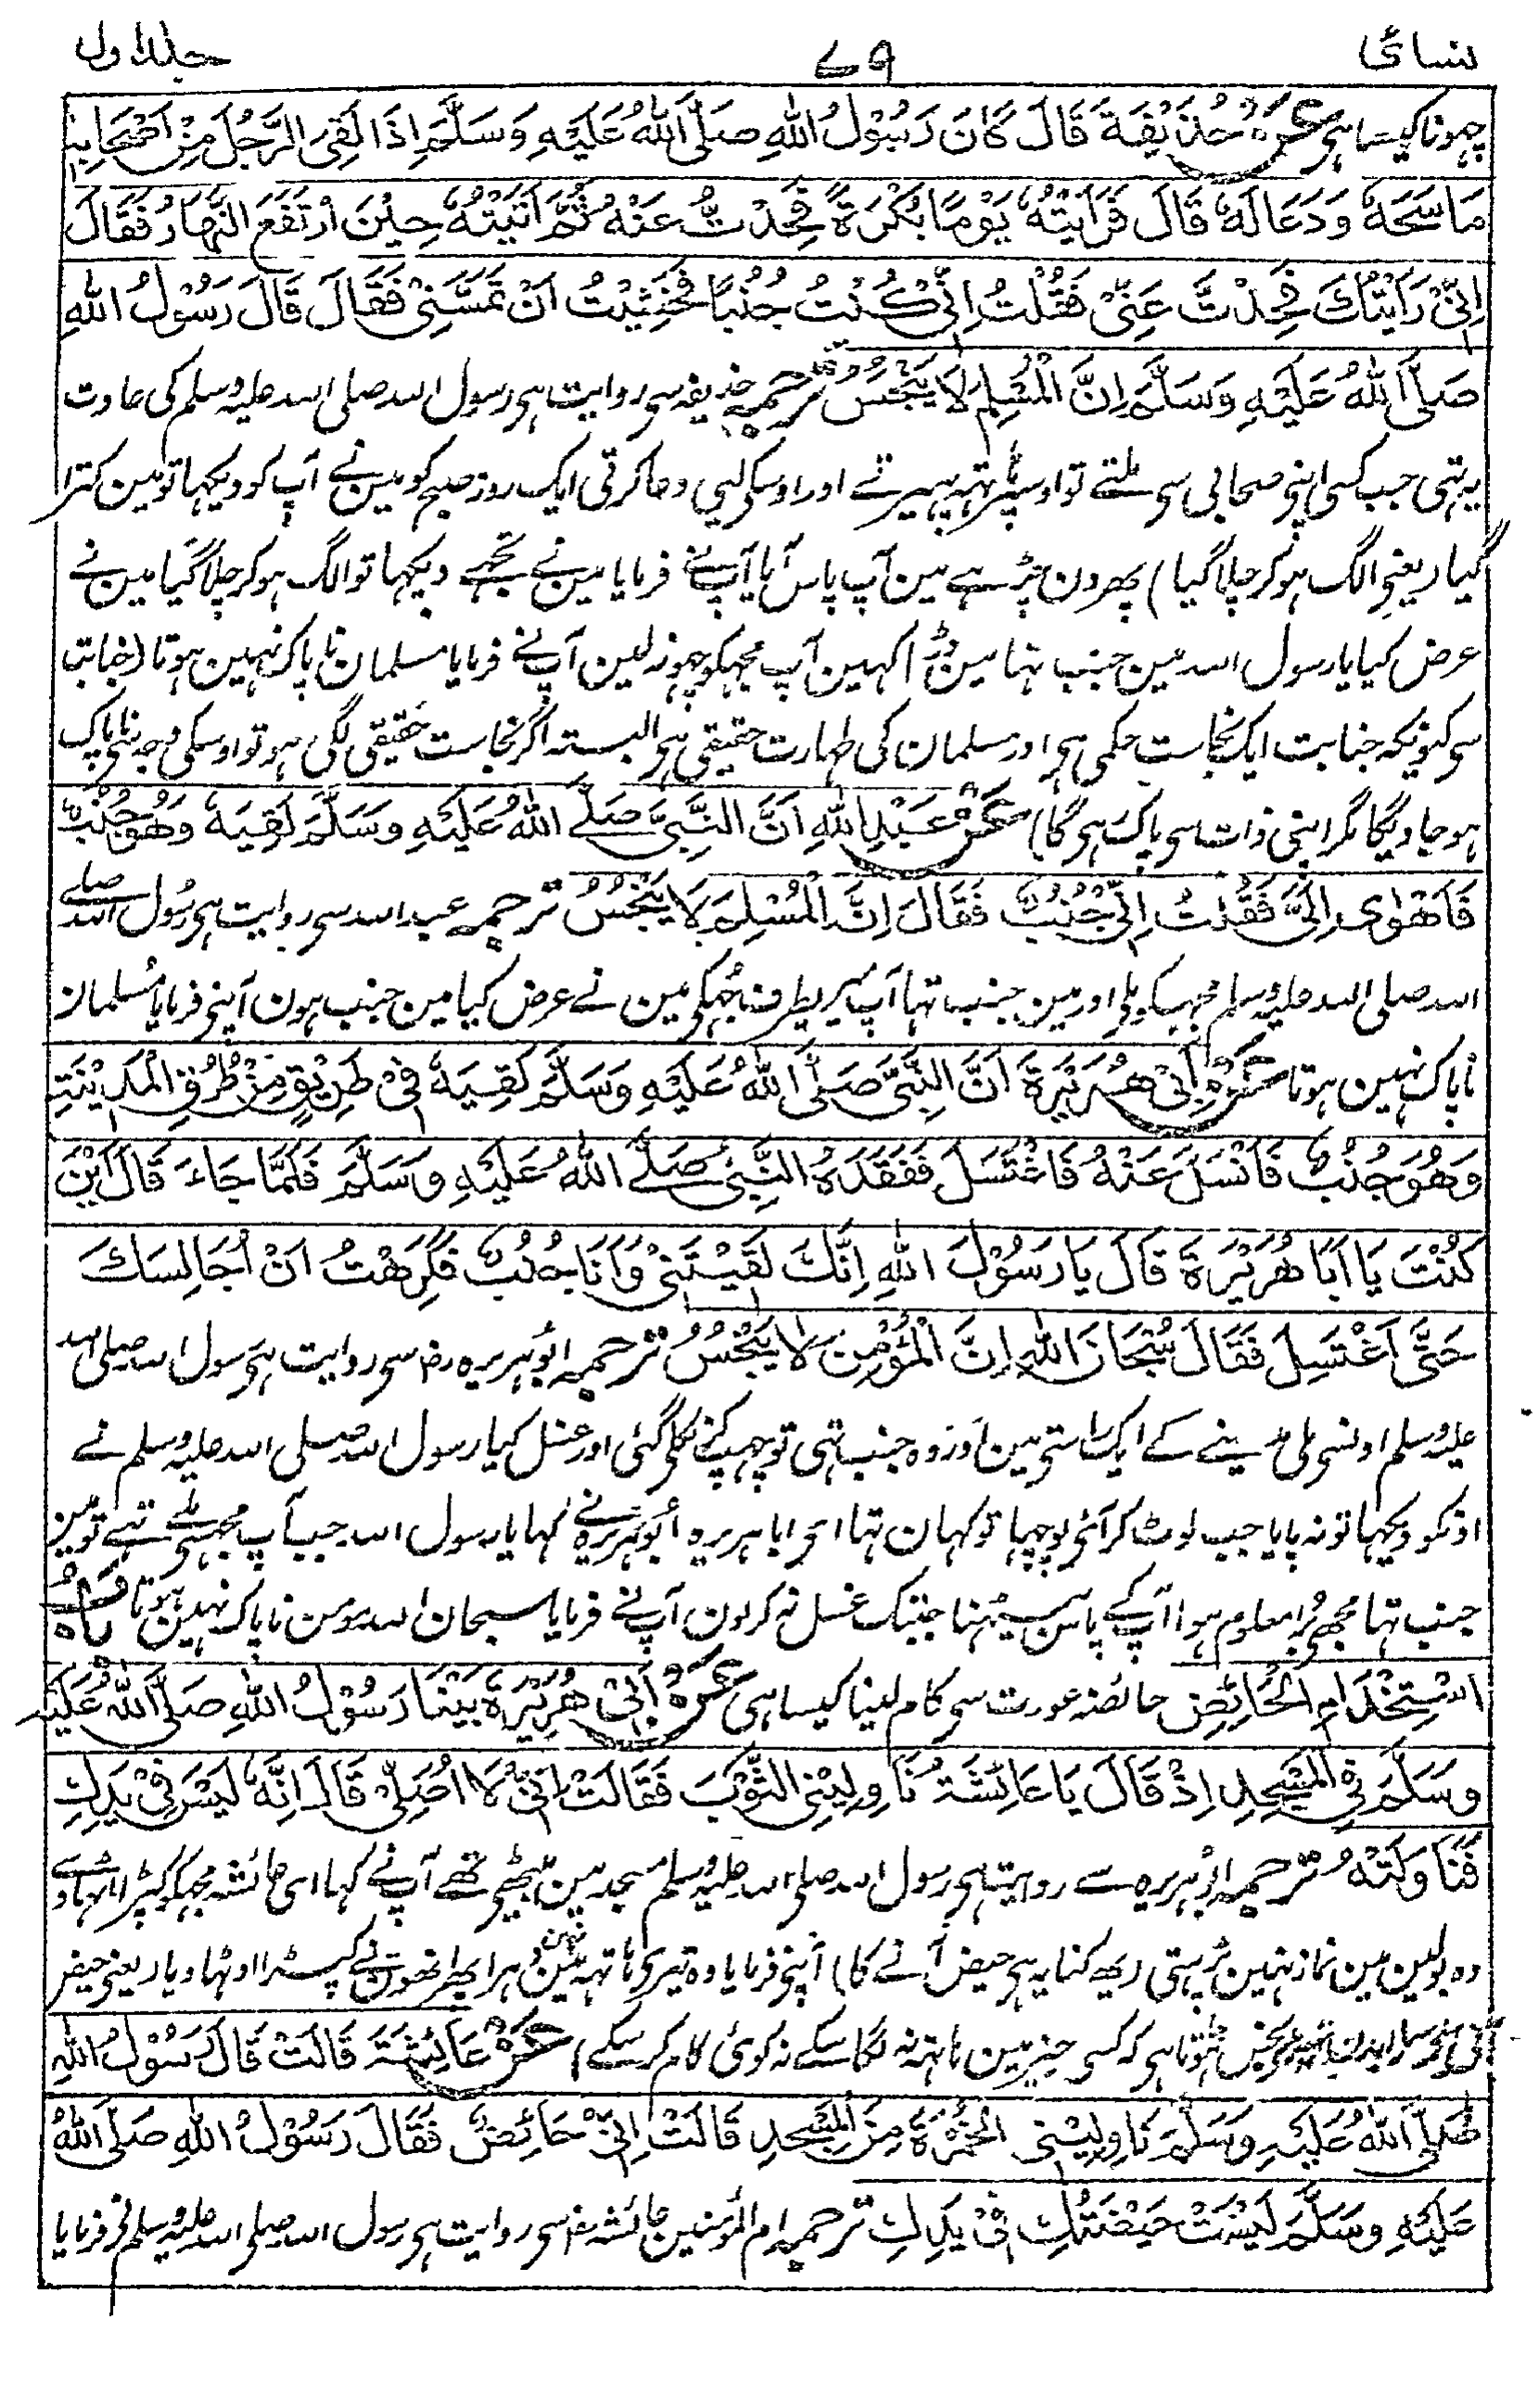 نسائی ۷۹ جلد اول
چھونا کیسا ہی عَنْ حُذَیْفَةَ قَالَ کَانَ رَسُوْلُ اللهِ صَلَّی اللهُ عَلَیْهِ وَسَلَّمَ اِذَا لَقِیَ الرَّجُلَ مِنْ اَصْحَابِهٖ
مَاسَحَهٗ وَدَعَا لَهٗ قَالَ فَرَاَیْتُهٗ یَوْمًا بُکْرَةً فَحِدْتُّ عَنْهُ ثُمَّ اَتَیْتُهٗ حِیْنَ ارْتَفَعَ النَّهَارُ فَقَالَ
اِنِّیْ رَاَیْتُكَ فَحِدْتَّ عَنِّیْ فَقُلْتُ اِنِّیْ کُنْتُ جُنُبًا فَخَشِیْتُ اَنْ تَمَسَّنِیْ فَقَالَ قَالَ رَسُوْلُ اللهِ
صَلَّی اللهُ عَلَیْهِ وَسَلَّمَ اِنَّ الْمُسْلِمَ لَا یَنْجُسُ ترجمہ حذیفہ سی روایت ہی رسول اللہ صلی اللہ علیہ وسلم کی عادت
یہ تہی جب کسی اپنی صحابی سی ملتے تو اوسپر ہاتھہ پہیرتے اور اوسکی لیی دعا کرتی ایک روز صبح کو مین نے آپ کو دیکہا تو مین کترا
گیا (یعنی الگ ہو کر چلا گیا) پھر دن چڑہے مین آپ پاس آیا آپنے فرمایا مین نے تجھے دیکہا تو الگ ہو کر چلا گیا مین نے
عرض کیا یا رسول اللہ مین جنب تہا مین ڈرا کہین آپ مجہکو چہو نہ لین آپنے فرمایا مسلمان ناپاک نہین ہوتا (جنابت
سی کیونکہ جنابت ایک نجاست حکمی ہی اور مسلمان کی طہارت حقیقی ہی البتہ اگر نجاست حقیقی لگی ہو تو اوسکی وجہ سی ناپاک
ہو جاویگا مگر اپنی ذات سی پاک ہی ہوگا) عَنْ عَبْدِ اللهِ اَنَّ النَّبِیَّ صَلَّی اللهُ عَلَیْهِ وَسَلَّمَ لَقِیَهٗ وَهُوَ جُنُبٌ
فَاَهْوٰی اِلَیَّ فَقُلْتُ اِنِّیْ جُنُبٌ فَقَالَ اِنَّ الْمُسْلِمَ لَا یَنْجُسُ ترجمہ عبد اللہ سی روایت ہی رسول اللہ صلے
اللہ صلی اللہ علیہ وسلم مجہکو ملی اور مین جنب تہا آپ میریطرف جہکی مین نے عرض کیا مین جنب ہون آپنی فرمایا مسلمان
ناپاک نہین ہوتا عَنْ اَبِیْ هُرَیْرَةَ اَنَّ النَّبِیَّ صَلَّی اللهُ عَلَیْهِ وَسَلَّمَ لَقِیَهٗ فِیْ طَرِیْقٍ مِنْ طُرُقِ الْمَدِیْنَةِ
وَهُوَ جُنُبٌ فَانْسَلَّ عَنْهُ فَاغْتَسَلَ فَفَقَدَهُ النَّبِیُّ صَلَّی اللهُ عَلَیْهِ وَسَلَّمَ فَلَمَّا جَاءَ قَالَ اَیْنَ
کُنْتَ یَا اَبَا هُرَیْرَةَ قَالَ یَا رَسُوْلَ اللهِ اِنَّكَ لَقِیْتَنِیْ وَاَنَا جُنُبٌ فَکَرِهْتُ اَنْ اُجَالِسَكَ
حَتّٰی اَغْتَسِلَ فَقَالَ سُبْحَانَ اللهِ اِنَّ الْمُؤْمِنَ لَا یَنْجُسُ ترجمہ ابوہریرہ رض سی روایت ہی رسول اللہ صلی اللہ
علیہ وسلم اونسی ملی مدینے کے ایک راستی مین اور وہ جنب تہی تو چہپکے نکل گئی اور غسل کیا رسول اللہ صلی اللہ علیہ وسلم نے
اونکو دیکہا تو نہ پایا جب لوٹ کر آئی پوچہا تو کہان تہا ای ابا ہریرہ ابوہریرہ نے کہا یا رسول اللہ جب آپ مجہسی ملے تہے تو مین
جنب تہا مجھی برا معلوم ہوا آپکے پاس بیٹہنا جبتک غسل نہ کر لون آپنے فرمایا سبحان اللہ مومن ناپاک نہین ہوتا بَابُ
اسْتِخْدَامِ الْحَائِضِ حائضہ عورت سی کام لینا کیسا ہی عَنْ اَبِیْ هُرَیْرَةَ بَیْنَا رَسُوْلُ اللهِ صَلَّی اللهُ عَلَیْهِ
وَسَلَّمَ فِی الْمَسْجِدِ اِذْ قَالَ یَا عَائِشَةُ نَاوِلِیْنِی الثَّوْبَ فَقَالَتْ اِنِّیْ لَا اُصَلِّیْ قَالَ اِنَّهٗ لَیْسَ فِیْ یَدِكِ
فَنَاوَلَتْهُ ترجمہ ابوہریرہ سے روایت ہی رسول اللہ صلی اللہ علیہ وسلم مسجد مین بیٹھی تھے آپنے کہا ای عائشہ مجہکو کپڑا اٹہا دے
وہ بولین مین نماز نہین پڑہتی (یہ کنایہ ہی حیض آنے کا) آپنی فرمایا وہ تیری ہاتھہ مین نہین ہی پھر انہون نے کپڑا اوٹہا دیا (یعنی حیض
آنی سی سارا بدن نجس ہوتا ہی کہ کسی چیز مین ہاتہہ نہ لگا سکے نہ کوئی کام کر سکے) عَنْ عَائِشَةَ قَالَتْ قَالَ رَسُوْلُ اللهِ
صَلَّی اللهُ عَلَیْهِ وَسَلَّمَ نَاوِلِیْنِی الْخُمْرَةَ مِنَ الْمَسْجِدِ قَالَتْ اِنِّیْ حَائِضٌ فَقَالَ رَسُوْلُ اللهِ صَلَّی اللهُ
عَلَیْهِ وَسَلَّمَ لَیْسَتْ حَیْضَتُكِ فِیْ یَدِكِ ترجمہ ام المؤمنین عائشہ رض سی روایت ہی رسول اللہ صلی اللہ علیہ وسلم نی فرمایا